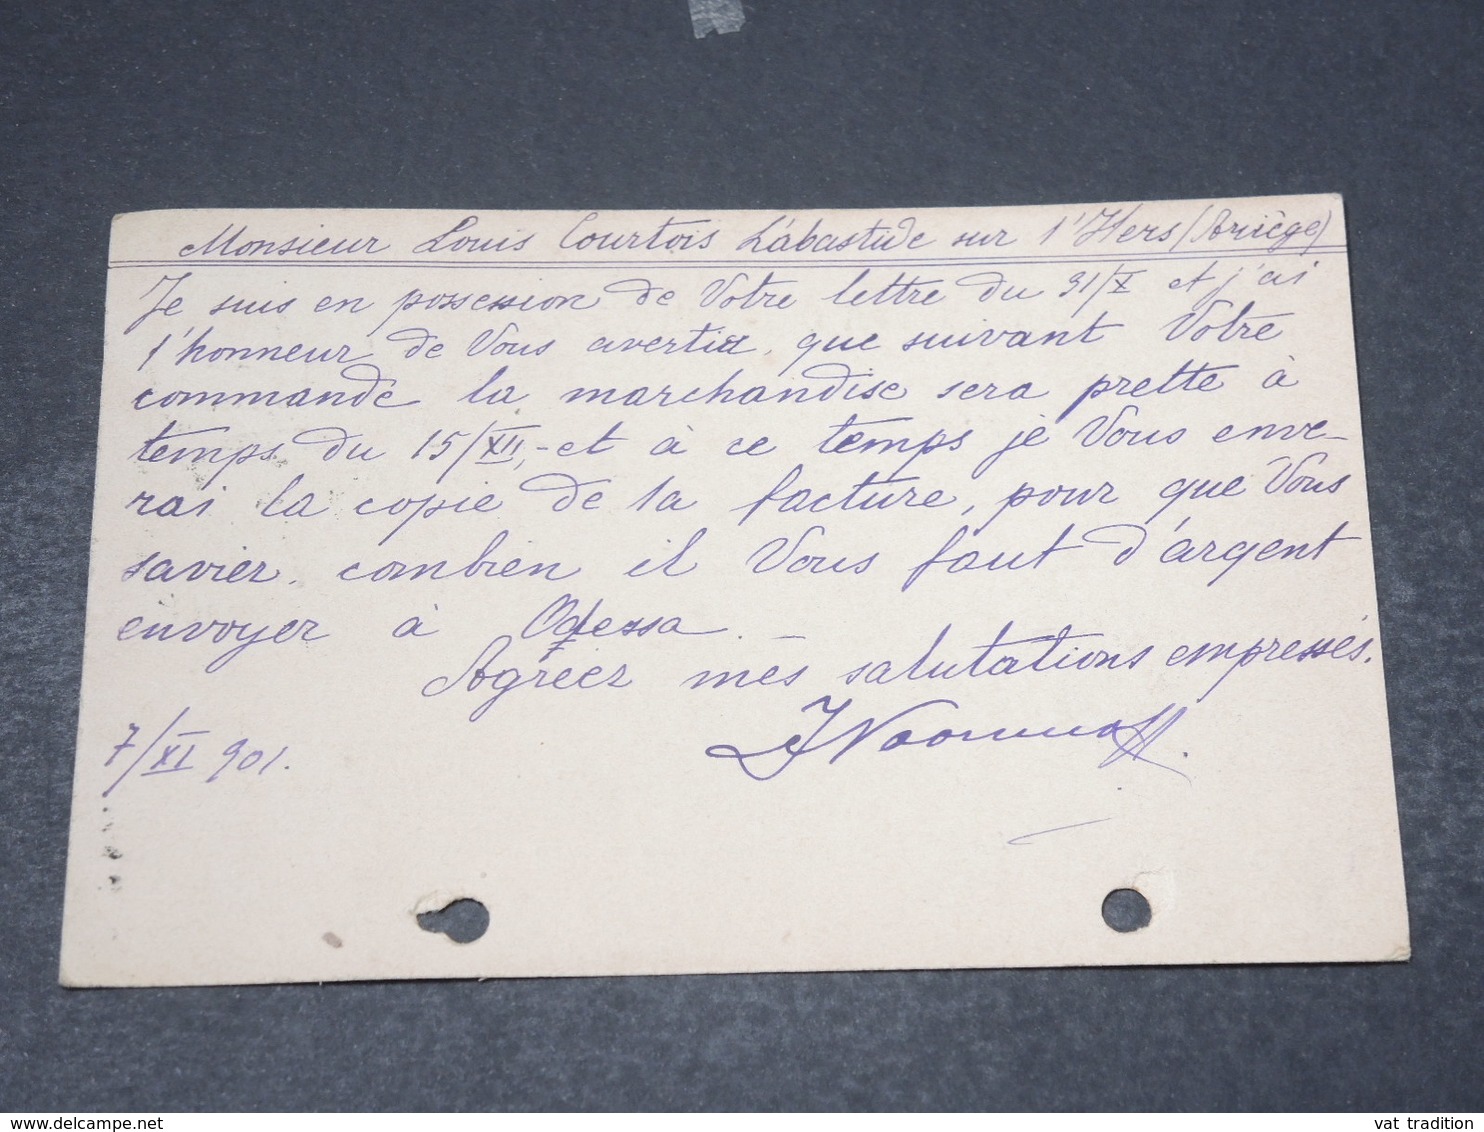 Monsieur Louis Courtois L'abastide sur l'Hers (Ariège)
Je suis en possession de Votre lettre du 31/X et j'ai
l'honneur de Vous avertir, que suivant Votre
commande la marchandise sera prette à
temps du 15/XII,- et à ce temps je Vous enve-
rai la copie de la facture, pour que Vous
savier, combien il Vous faut d'argent
envoyer à Odessa. —
Agréez mes salutations empressés.
7/XI 901.
vat tradition